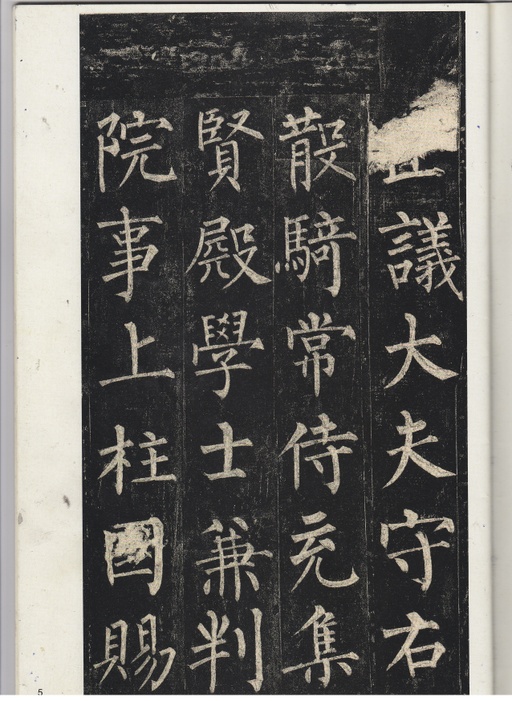 正議大夫守右
散騎常侍充集
賢殿學士兼判
院事上柱國賜
5